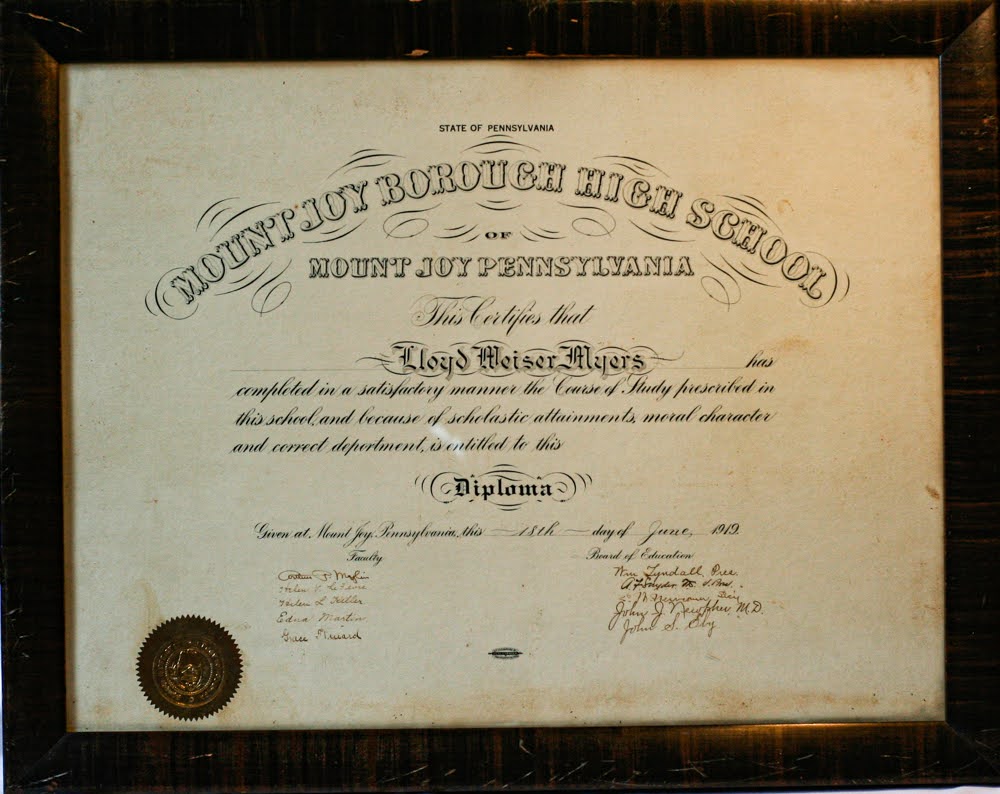 STATE OF PENNSYLVANIA
MOUNT JOY BOROUGH HIGH SCHOOL
OF
MOUNT JOY PENNSYLVANIA
This Certifies that
Lloyd Weiser Myers has
completed in a satisfactory manner the Course of Study prescribed in
this school, and because of scholastic attainments, moral character
and correct deportment, is entitled to this
Diploma
Given at Mount Joy, Pennsylvania, this 18th day of June, 1919.
Faculty
Board of Education
Helen
Helen L.
Edna Martin
Grace
Wm Tyndall, Pres.
A. Snyder
John J. M.D.
John S. Eby